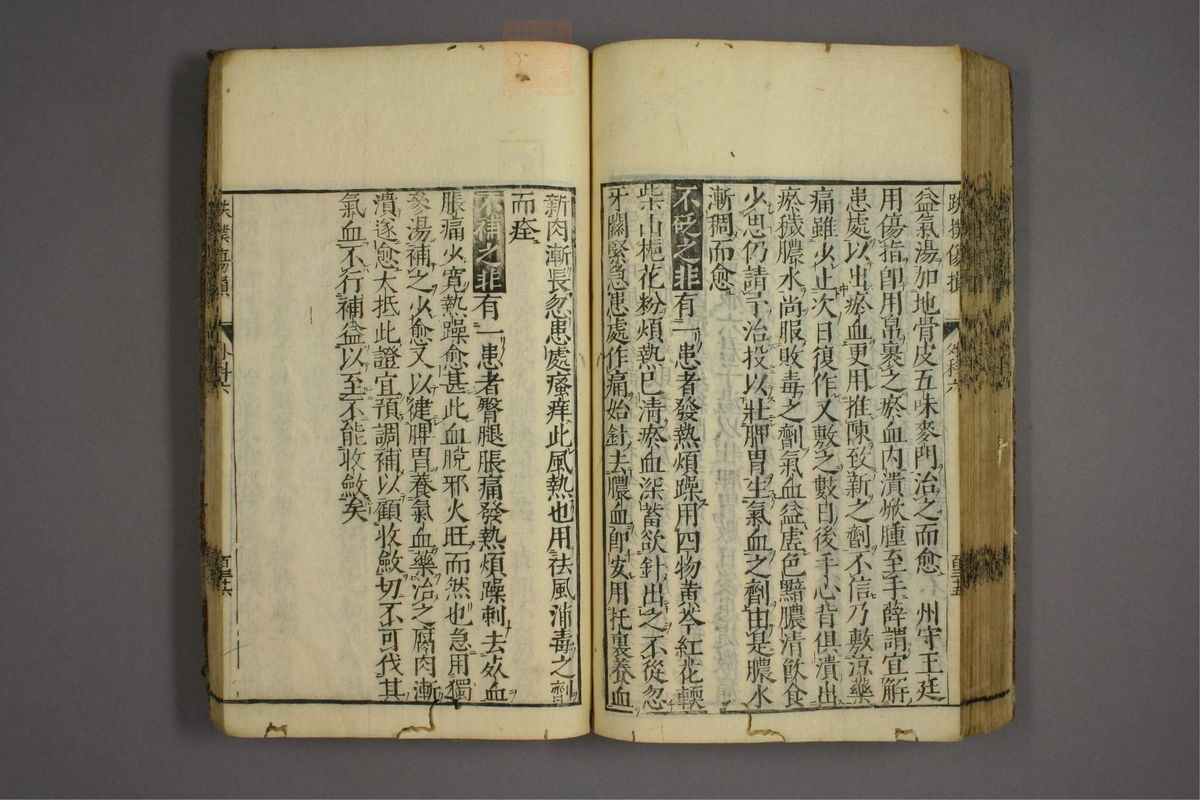 益氣湯加地骨皮五味麥門治之而愈 州守王廷
用傷指卽用帛裹之瘀血內潰焮腫至手薛謂宜解
患處以出瘀血更用推陳致新之劑不信乃敷凉藥
痛雖少止次日復作又敷之數日後手心背俱潰出
瘀穢膿水尚服敗毒之劑氣血益虛色黯膿清飲食
少思仍請予治投以壯脾胃生氣血之劑由是膿水
漸稠而愈
不砭之非有一患者發熱煩躁用四物黃芩紅花軟
柴山梔花粉煩熱已清瘀血深蓄欲針出之不從忽
牙關緊急患處作痛始針去膿血卽安用托裏養血
新肉漸長忽患處瘙痒此風熱也用祛風消毒之劑
而痊
不補之非有一患者臀腿脹痛發熱煩躁刺去死血
脹痛少寬熱躁愈甚此血脫邪火旺而然也急用獨
參湯補之少愈又以健脾胃養氣血藥治之腐肉漸
潰遂愈大抵此證宜預調補以顧收斂切不可伐其
氣血不行補益以至不能收斂矣
跌撲傷損
外科六
百三十五
跌撲傷損
外科六
百三十六